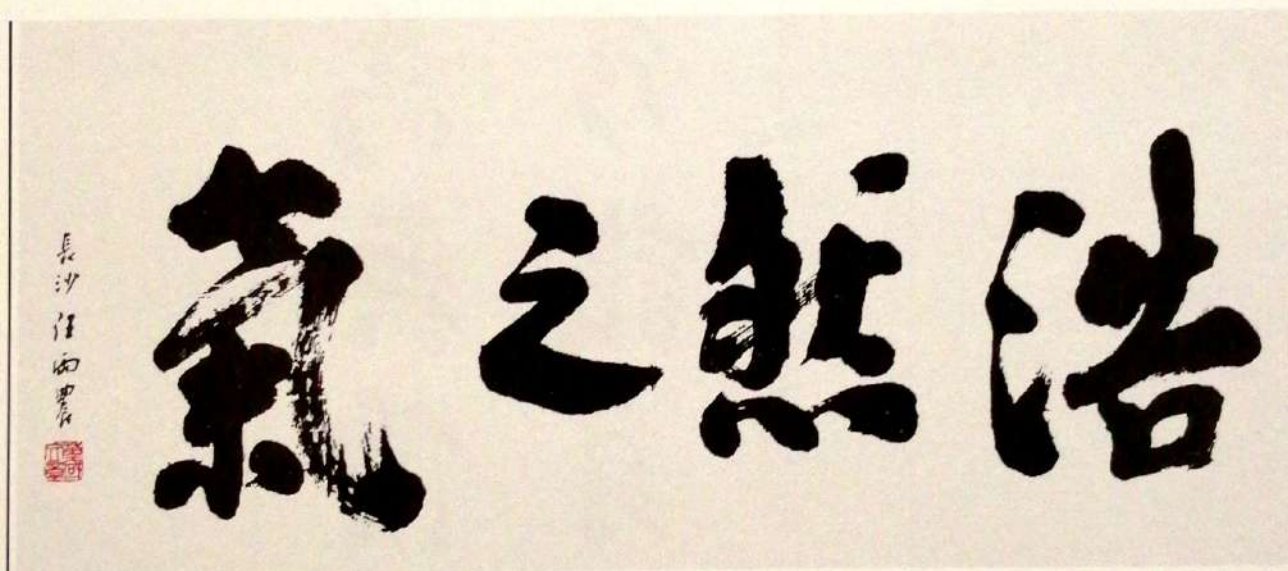 浩然之氣
長沙任雨農